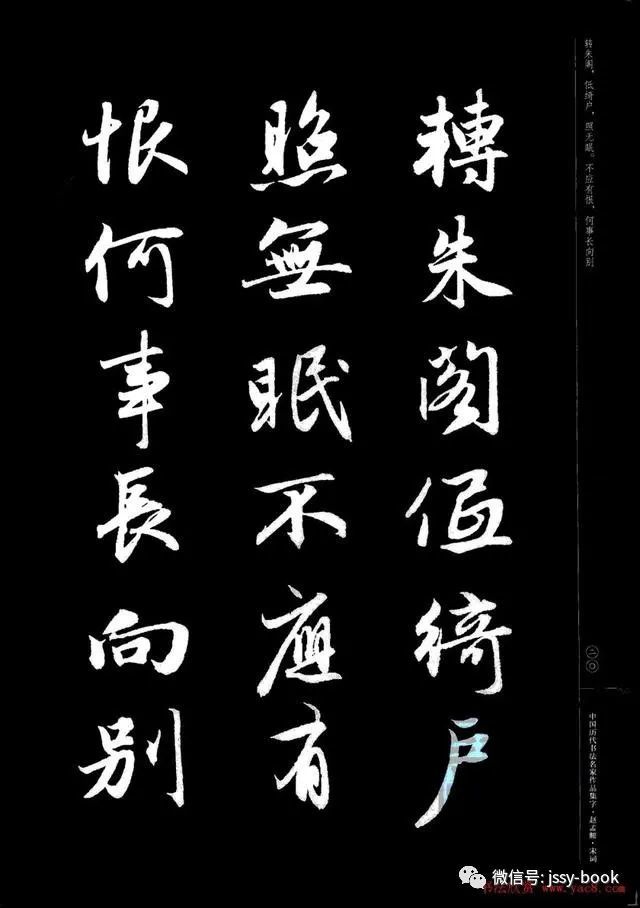 轉朱閣低綺戶
照無眠不應有
恨何事長向別
转朱阁，低绮户，照无眠。不应有恨，何事长向别
二〇
中国历代书法名家作品集字·赵孟頫·宋词
微信号: jssy-book
书法欣赏 www.yac8.com